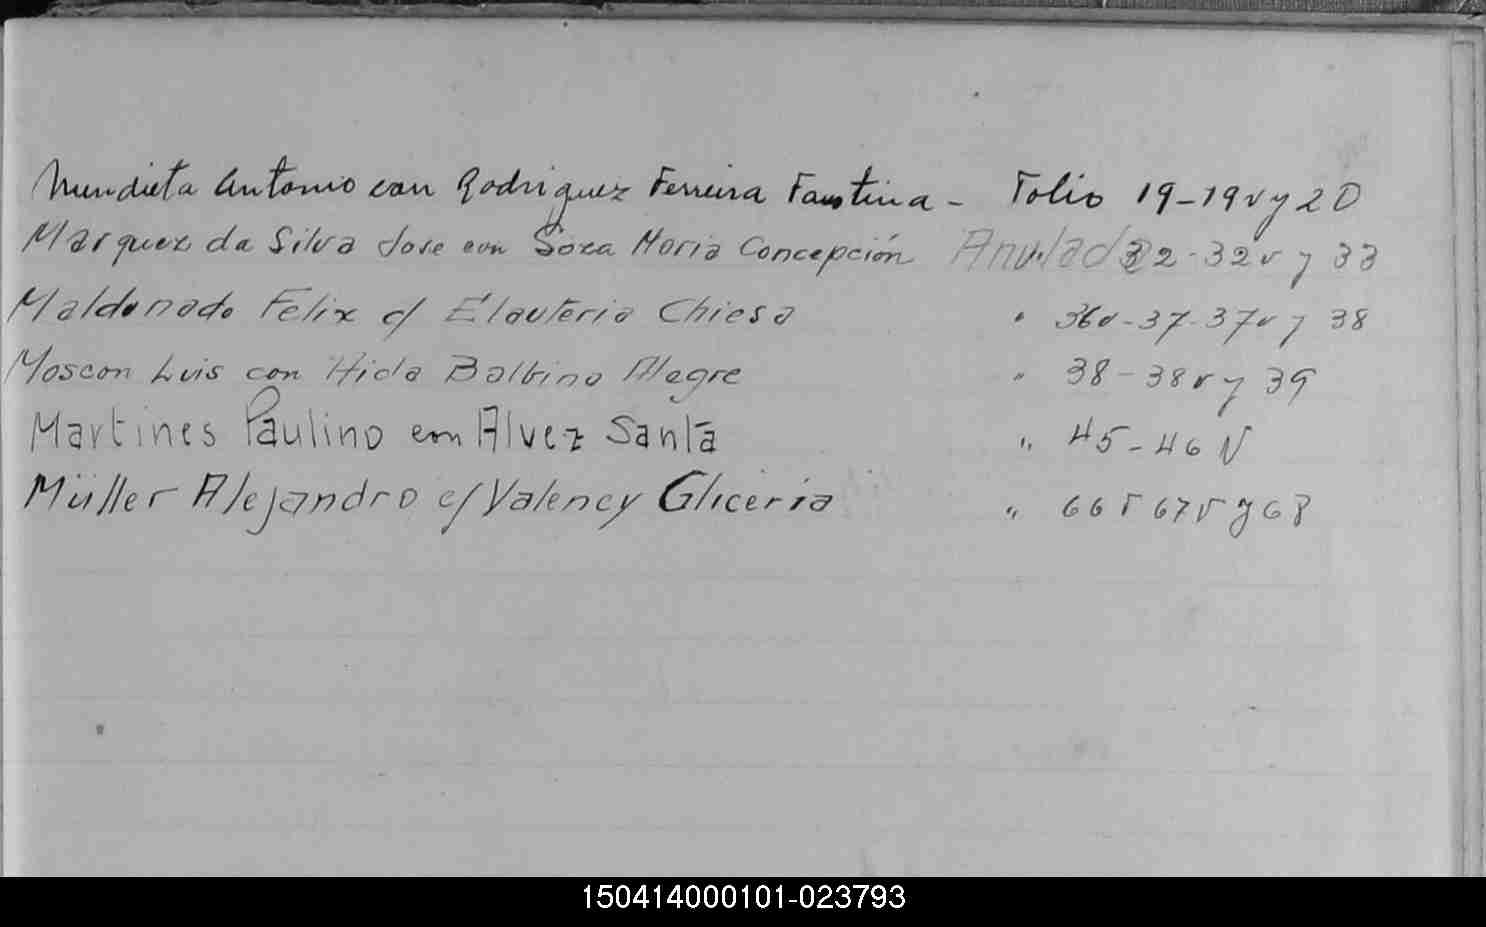 Mendieta Antonio con Rodriguez Ferreira Faustina - Folio 19-19v y 20
Marquez da Silva Jose con Soza Maria Concepción Anulado 32-32v y 33
Maldonado Felix c/ Elauteria Chiesa " 36v-37-37v y 38
Moscon Luis con Hida Balbina Alegre " 38-38v y 39
Martines Paulino con Alvez Santa " 45-46 V
Müller Alejandro c/ Valency Gliceria " 66 v 67 v y 68
150414000101-023793